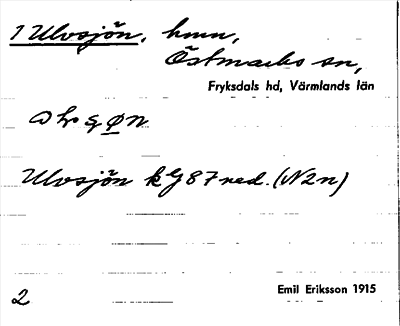 1 Ulvsjön, hmn,
Östmarks sn,
Fryksdals hd, Värmlands län
Ulvsjön k G 87 ned. (N2n)
2
Emil Eriksson 1915